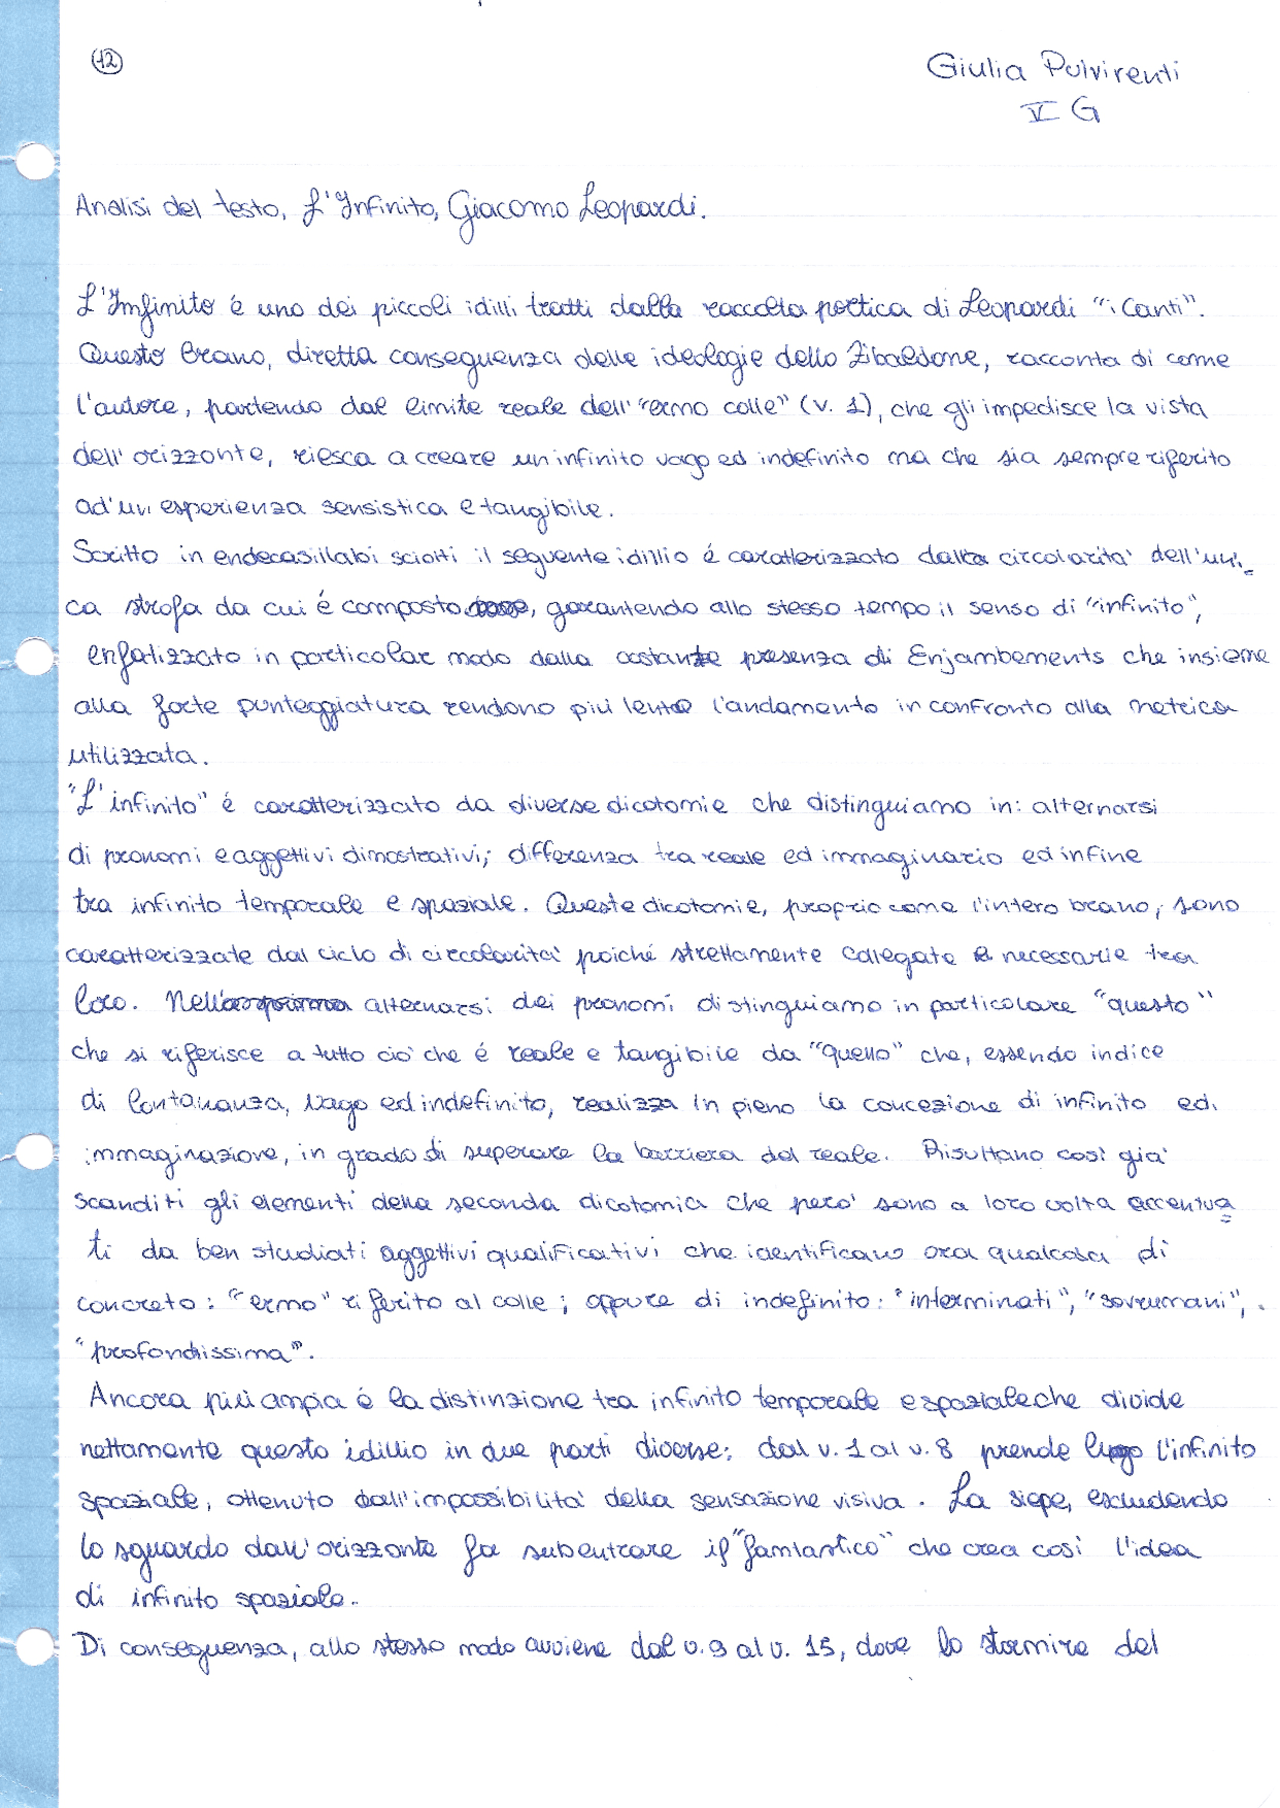 12
Giulia Pulvirenti
V G
Analisi del testo, L'Infinito, Giacomo Leopardi.
L'Infinito é uno dei piccoli idilli tratti dalla raccolta poetica di Leopardi "i Canti".
Questo brano, diretta conseguenza delle ideologie dello Zibaldone, racconta di come
l'autore, partendo dal limite reale dell'"ermo colle" (v. 1), che gli impedisce la vista
dell'orizzonte, riesca a creare un infinito vago ed indefinito ma che sia sempre riferito
ad'un esperienza sensistica e tangibile.
Scritto in endecasillabi sciolti il seguente idillio é caratterizzato dalla circolarita' dell'uni=
ca strofa da cui é composto, garantendo allo stesso tempo il senso di "infinito",
enfatizzato in particolar modo dalla costante presenza di Enjambements che insieme
alla forte punteggiatura rendono piú lento l'andamento in confronto alla metrica
utilizzata.
"L'infinito" é caratterizzato da diverse dicotomie che distinguiamo in: alternarsi
di pronomi e aggettivi dimostrativi; differenza tra reale ed immaginario ed infine
tra infinito temporale e spaziale. Queste dicotomie, proprio come l'intero brano, sono
caratterizzate dal ciclo di circolarita' poiché strettamente collegate e necessarie tra
loro. Nell' alternarsi dei pronomi distinguiamo in particolare "questo"
che si riferisce a tutto cio' che é reale e tangibile da "quello" che, essendo indice
di lontananza, vago ed indefinito, realizza in pieno la concezione di infinito ed
immaginazione, in grado di superare la barriera del reale. Risultano cosi' gia'
scanditi gli elementi della seconda dicotomia che pero' sono a loro volta accentua=
ti da ben studiati aggettivi qualificativi che identificano ora qualcosa di
concreto: "ermo" riferito al colle; oppure di indefinito: "interminati", "sovrumani",
"profondissima".
Ancora piú ampia é la distinzione tra infinito temporale e spaziale che divide
nettamente questo idillio in due parti diverse: dal v. 1 al v. 8 prende luogo l'infinito
spaziale, ottenuto dall'impossibilita' della sensazione visiva. La siepe, escludendo
lo sguardo dall'orizzonte fa subentrare il "fantastico" che crea cosi' l'idea
di infinito spaziale.
Di conseguenza, allo stesso modo avviene dal v. 9 al v. 15, dove lo stormire del